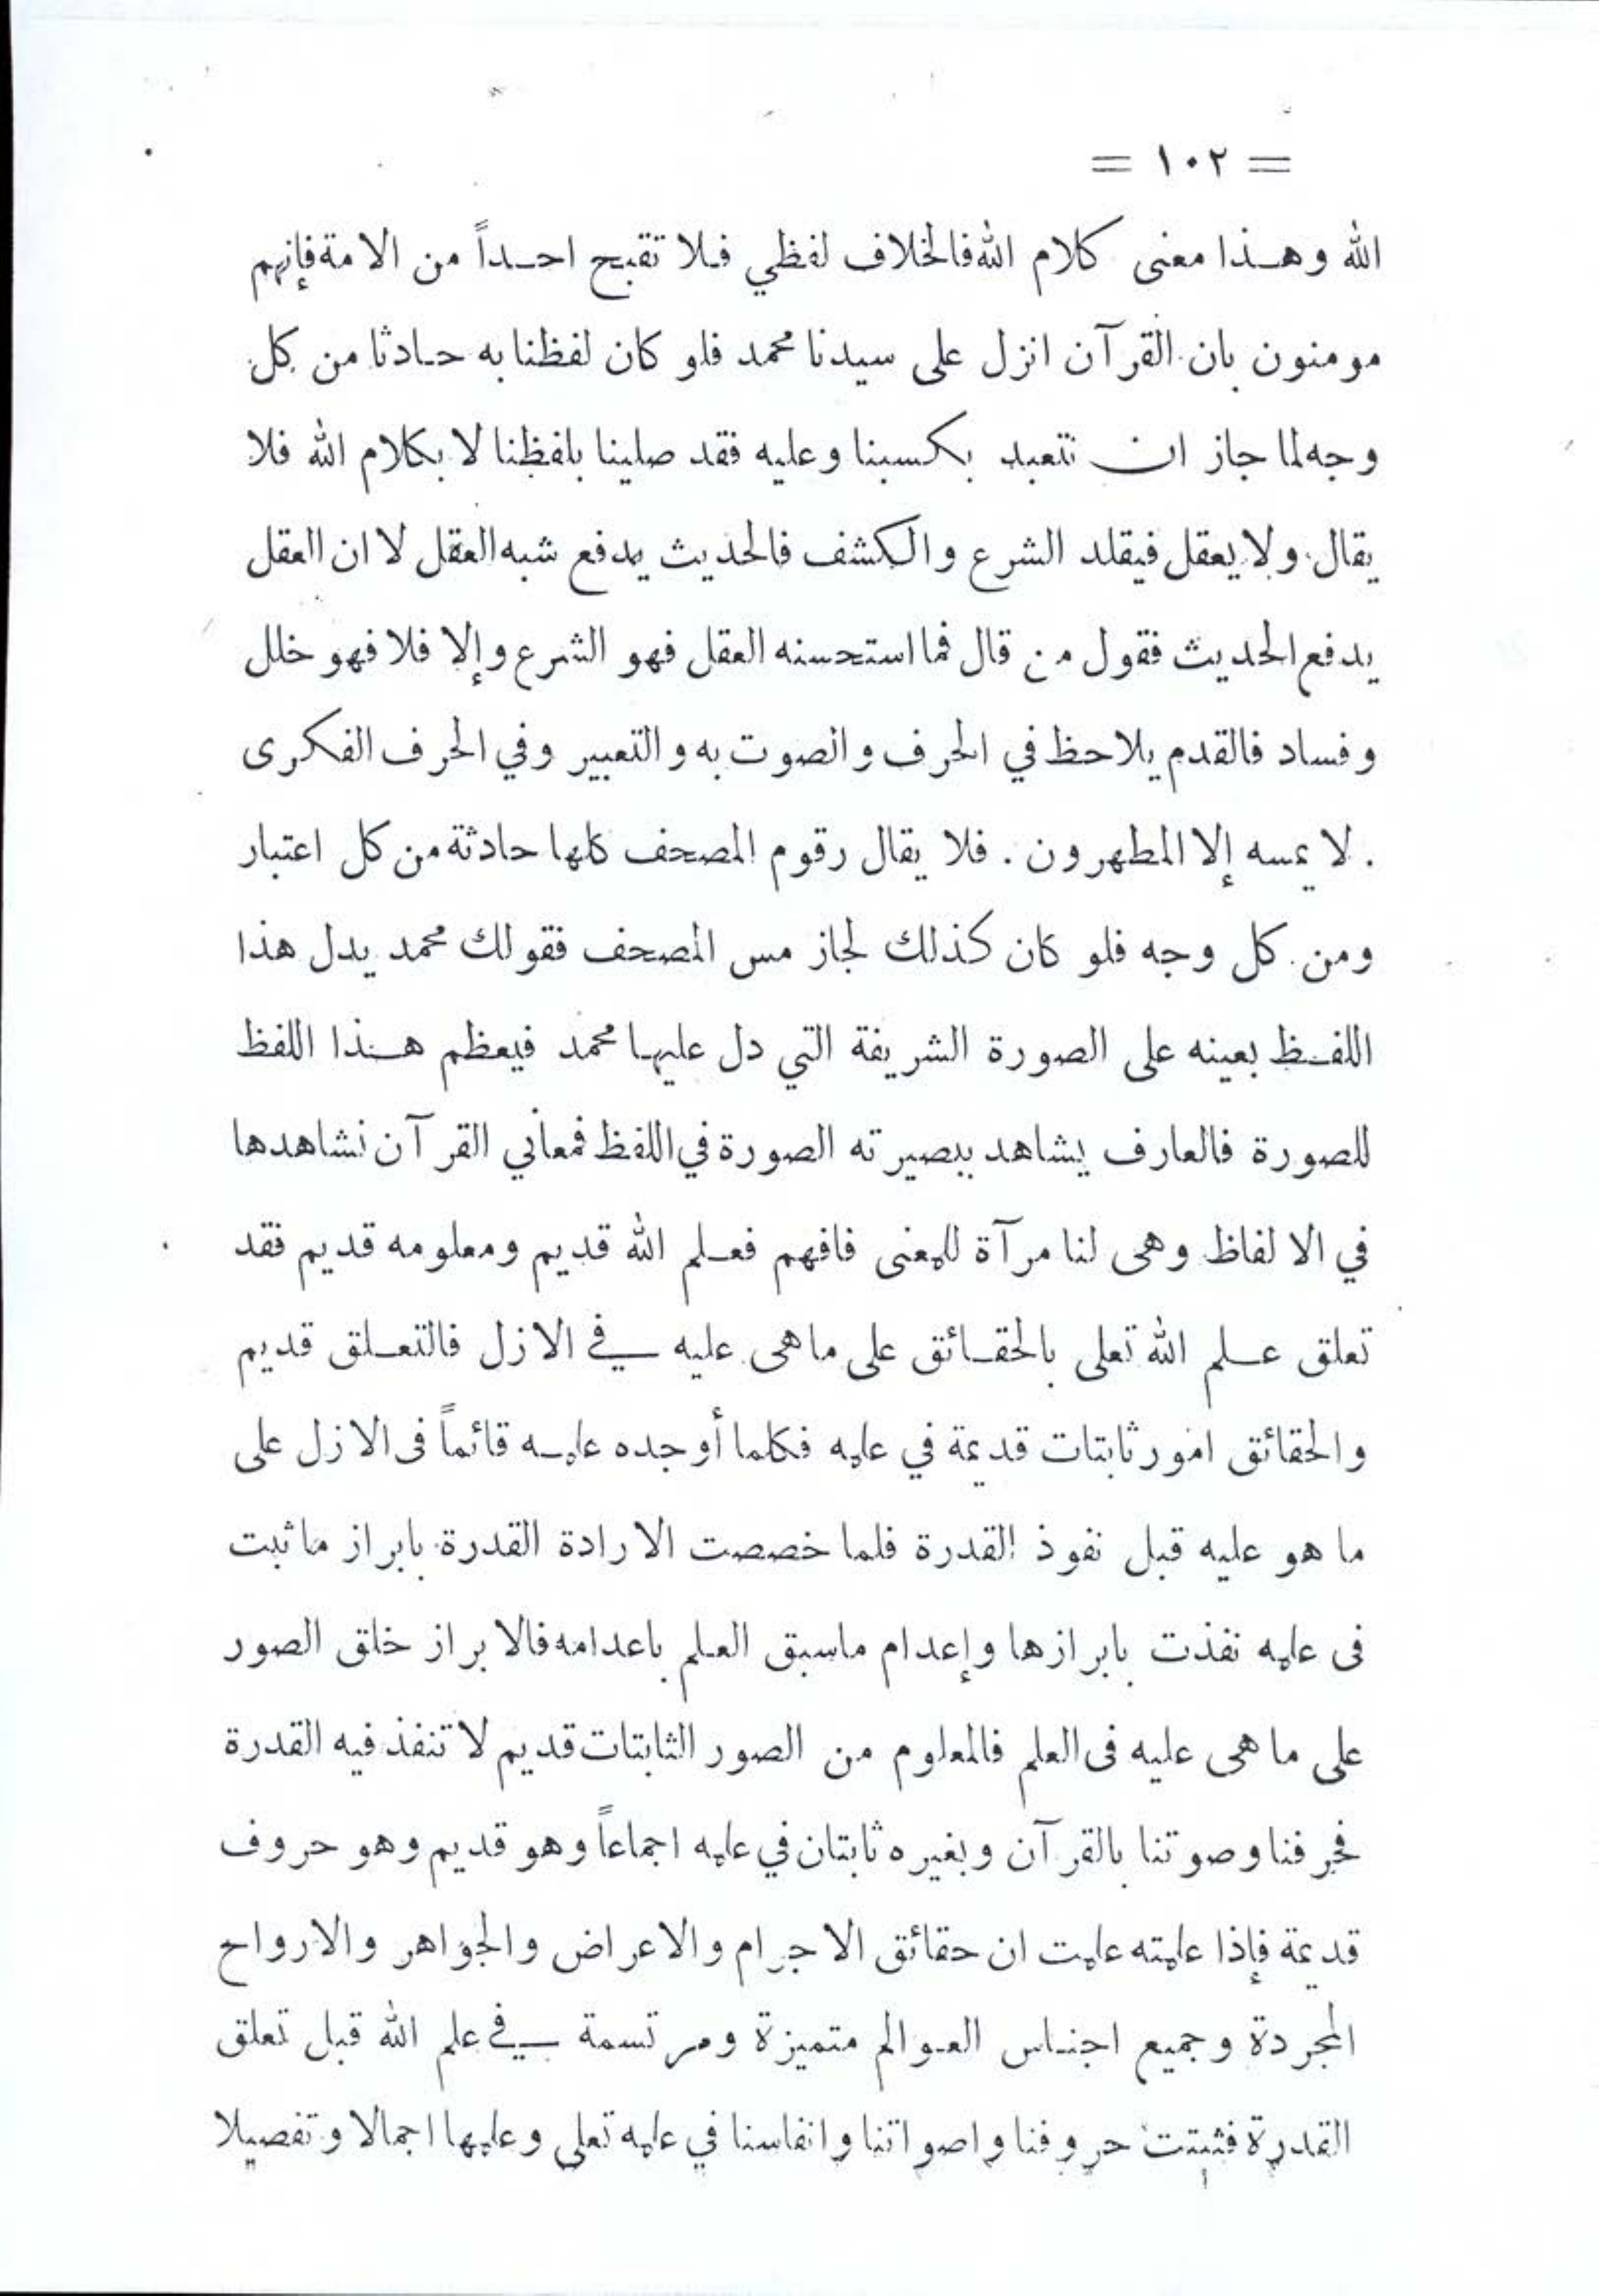 = ١٠٢ =
الله وهذا معنى كلام الله فالخلاف لفظي فلا تقبح احداً من الامة فإنهم
مومنون بان القرآن انزل على سيدنا محمد فلو كان لفظنا به حادثا من كل
وجه لما جاز ان نتعبد بكسبنا وعليه فقد صلينا بلفظنا لا بكلام الله فلا
يقال ولا يعقل فيقلد الشرع والكشف فالحديث يدفع شبه العقل لا ان العقل
يدفع الحديث فقول من قال فما استحسنه العقل فهو الشرع وإلا فلا فهو خلل
وفساد فالقدم يلاحظ في الحرف والصوت به والتعبير وفي الحرف الفكرى
. لا يمسه إلا المطهرون . فلا يقال رقوم المصحف كلها حادثة من كل اعتبار
ومن كل وجه فلو كان كذلك لجاز مس المصحف فقولك محمد يدل هذا
اللفظ بعينه على الصورة الشريفة التي دل عليها محمد فيعظم هذا اللفظ
للصورة فالعارف يشاهد ببصيرته الصورة في اللفظ فمعاني القرآن نشاهدها
في الالفاظ وهى لنا مرآة للمعنى فافهم فعلم الله قديم ومعلومه قديم فقد
تعلق علم الله تعلى بالحقائق على ماهى عليه في الازل فالتعلق قديم
والحقائق امور ثابتات قديمة في علمه فكلما أوجده علمه قائماً فى الازل على
ما هو عليه قبل نفوذ القدرة فلما خصصت الارادة القدرة بابراز ما ثبت
فى علمه نفذت بابرازها وإعدام ماسبق العلم باعدامه فالابراز خلق الصور
على ما هى عليه فى العلم فالمعلوم من الصور الثابتات قديم لا تنفذ فيه القدرة
فحرفنا وصوتنا بالقرآن وبغيره ثابتان في علمه اجماعاً وهو قديم وهو حروف
قديمة فإذا علمته علمت ان حقائق الاجرام والاعراض والجواهر والارواح
المجردة وجميع اجناس العوالم متميزة ومرتسمة في علم الله قبل تعلق
القدرة فثبتت حروفنا واصواتنا وانفاسنا في علمه تعلى وعلمها اجمالا وتفصيلا